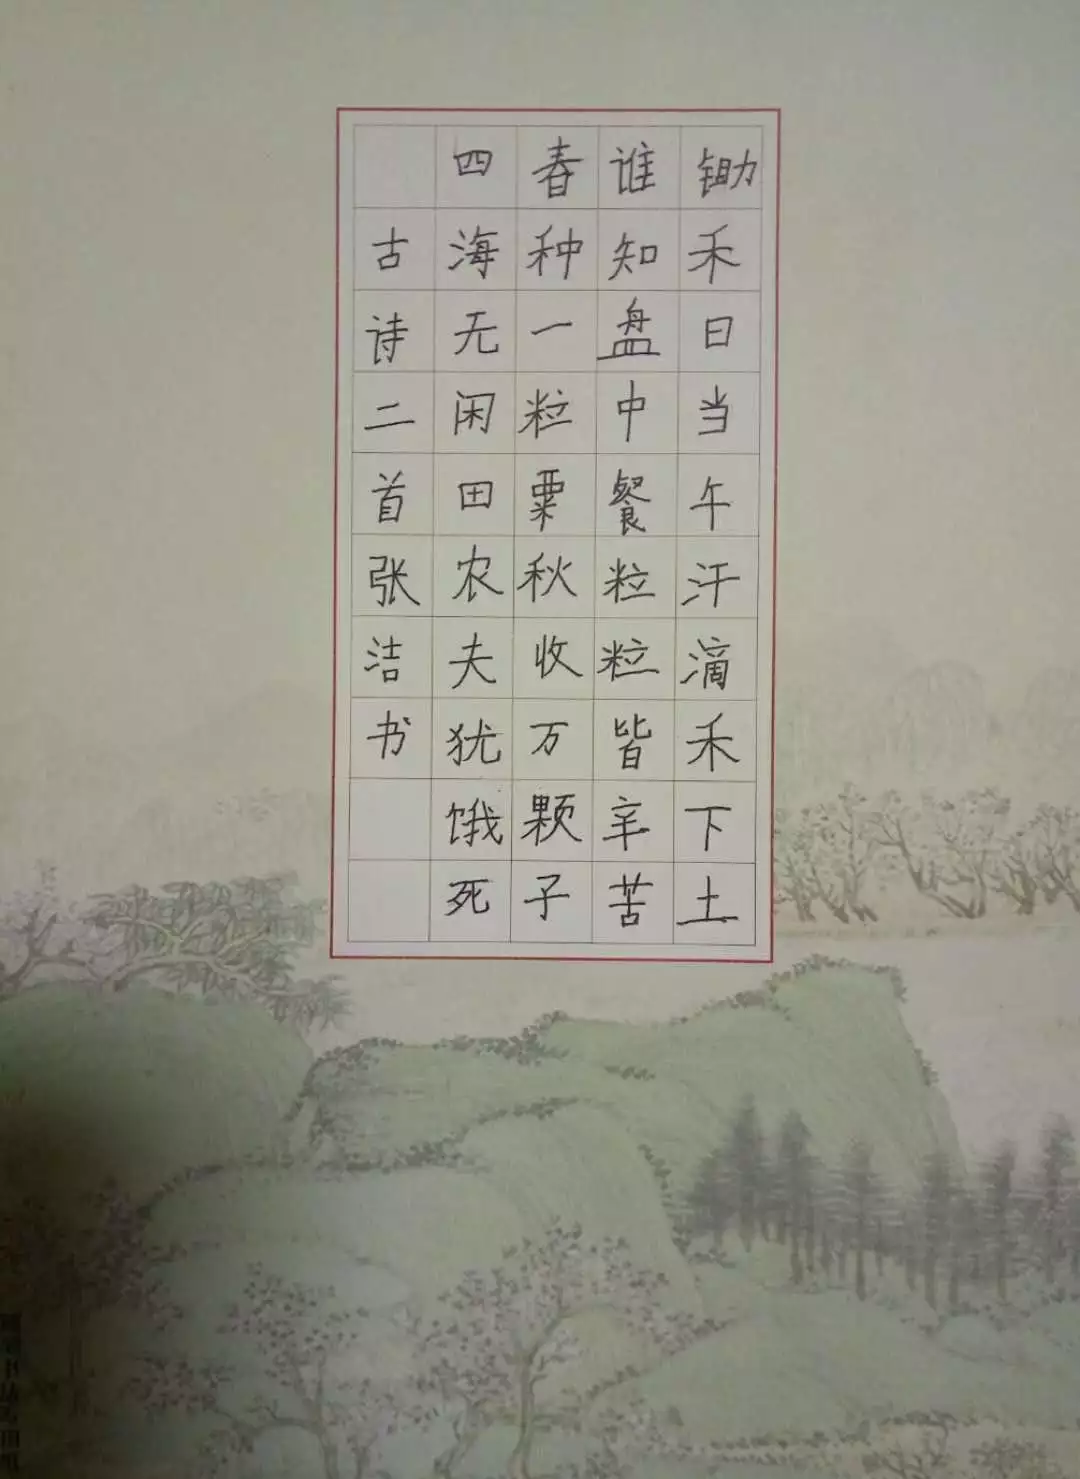 锄禾日当午汗滴禾下土
谁知盘中餐粒粒皆辛苦
春种一粒粟秋收万颗子
四海无闲田农夫犹饿死
古诗二首张洁书